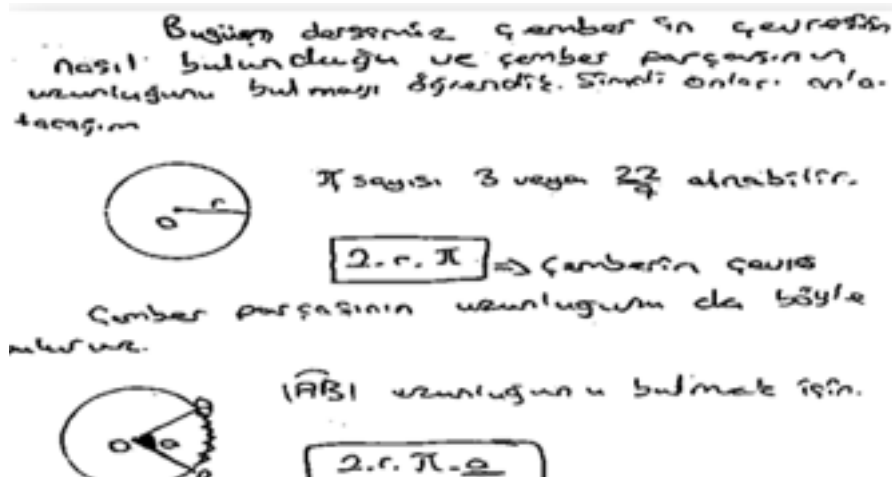 Bugün dersimiz çemberin çevresinin
nasıl bulunduğu ve çember parçasının
uzunluğunu bulmayı öğrendik. Şimdi onları anla-
tacağım
r
O
π sayısı 3 veya 22/7 alınabilir.
2.r.π ⇒ Çemberin çevres
Çember parçasının uzunluğunu da böyle
|AB| uzunluğunu bulmak için.
O a
2.r.π.a